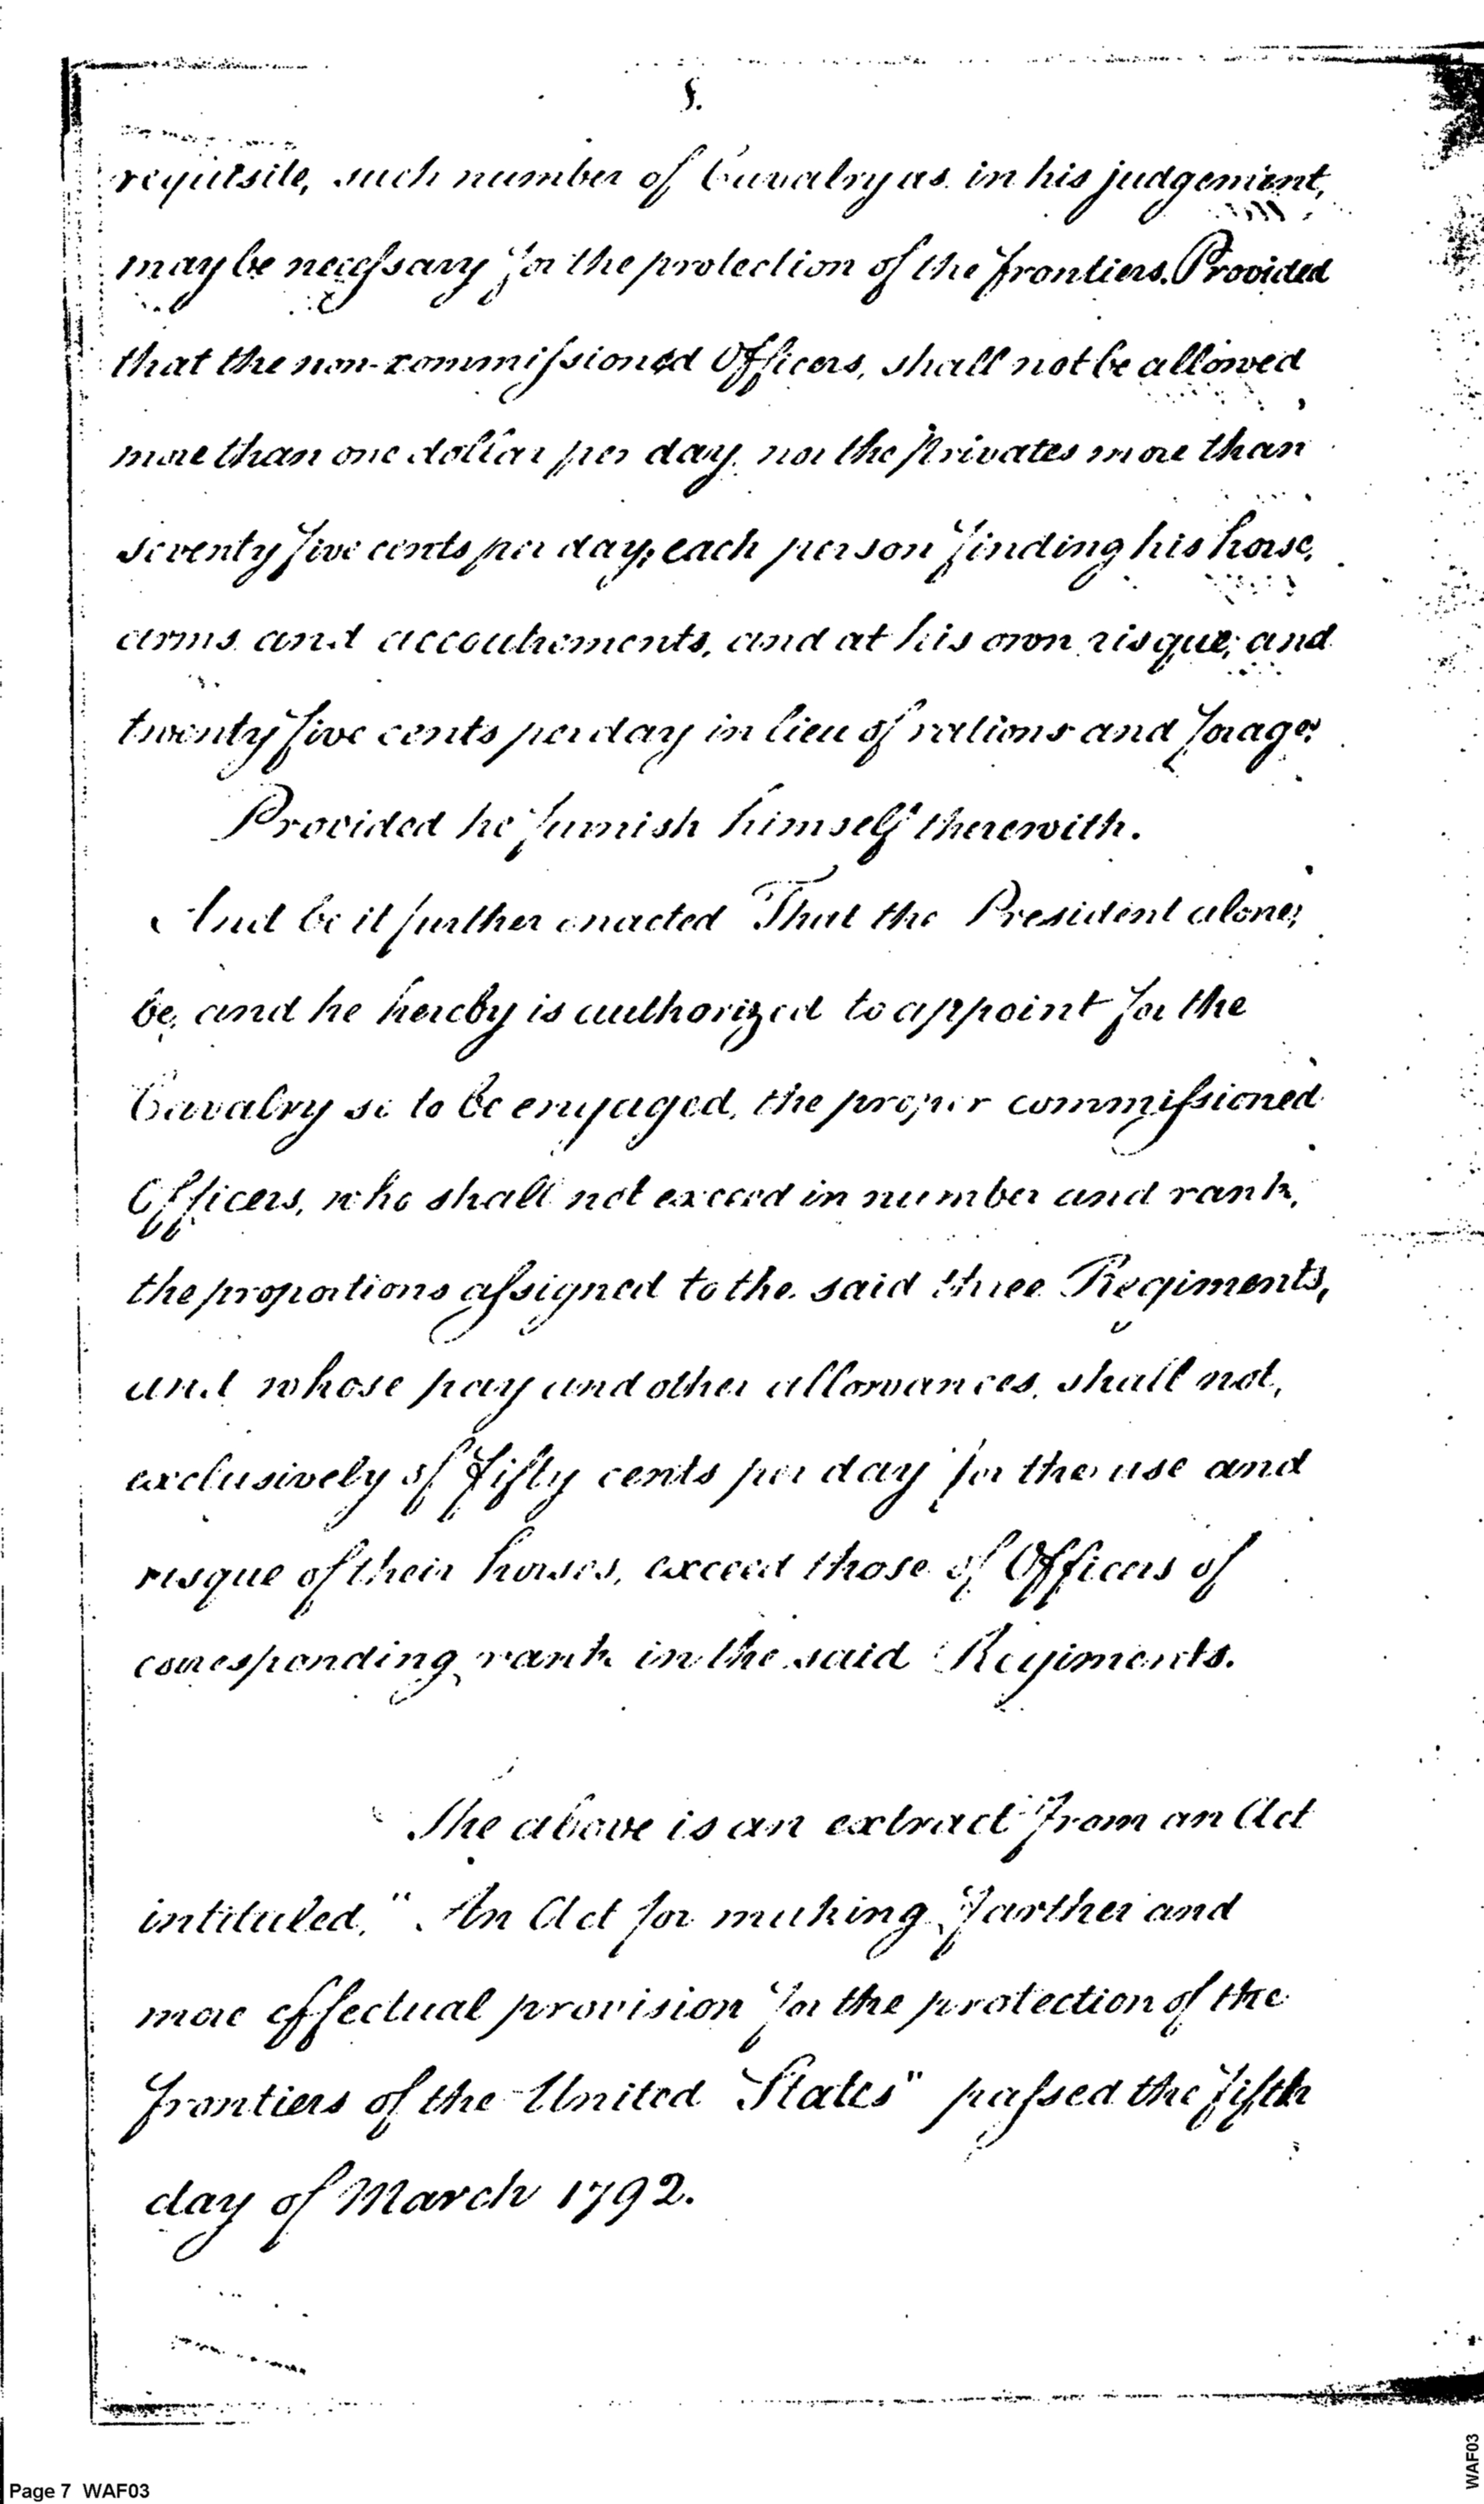 requisite, such number of Cavalry as in his judgement,
may be necessary for the protection of the frontiers. Provided
that the non-commissioned Officers, shall not be allowed
more than one dollar per day, nor the Privates more than
seventy five cents per day, each person finding his horse,
arms and accoutrements, and at his own risque; and
twenty five cents per day in lieu of rations and forage:
Provided he furnish himself therewith.
And be it further enacted That the President alone,
be, and he hereby is authorized to appoint for the
Cavalry so to be engaged, the proper commissioned
Officers, who shall not exceed in number and rank,
the proportions assigned to the said three Regiments,
and whose pay and other allowances, shall not,
exclusively of fifty cents per day for the use and
risque of their horses, exceed those of Officers of
corresponding rank in the said Regiments.
The above is an extract from an Act
intituled, "An Act for making farther and
more effectual provision for the protection of the
frontiers of the United States" passed the fifth
day of March 1792.
Page 7 WAF03
WAF03